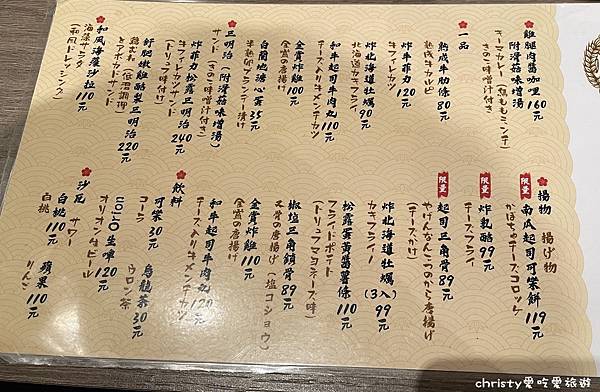 雞腿肉醬咖哩 160元
附滑菇味噌湯
キーマカレー(鶏ももミンチ)
きのこ味噌汁付き
一品
熟成牛肋條 80元
熟成牛カルビ
炸牛菲力 120元
牛フィレカツ
炸北海道牡蠣 90元
北海道カキフライ
和牛起司牛肉丸 110元
チーズ入り牛メンチカツ
金賞炸雞 100元
金賞の唐揚げ
白蘭地溏心蛋 35元
半熟卵ブランデー漬け
三明治(附滑菇味噌湯)
サンド(きのこ味噌汁付き)
炸菲力松露三明治 240元
牛フィレカツサンド
(トリュフ味噌汁付き)
舒肥嫩雞酪梨三明治 220元
鶏むね(低温調理)
とアボカドサンド
和風海藻沙拉 110元
海藻サラダ
(和風ドレッシング)
揚物 揚げ物
限量 南瓜起司可樂餅 119元
かぼちゃチーズコロッケ
限量 炸乳酪 99元
チーズフライ
限量 起司三角骨 89元
やげんなんこつのから唐揚げ
(チーズがけ)
炸北海道牡蠣(3入) 99元
カキフライ
松露蛋黃醬薯條 110元
フライドポテト
(トリュフマヨネーズ味)
椒塩三角鎖骨 89元
三角骨の唐揚げ(塩コショウ)
金賞炸雞 110元
金賞の唐揚げ
和牛起司牛肉丸 120元
チーズ入り牛メンチカツ
飲料
可樂 30元 烏龍茶 30元
コーラ ウロン茶
オリオン生啤 120元
オリオン生ビール
沙瓦 サワー
白桃 110元 蘋果 110元
白桃 りんご
christy愛吃愛旅遊